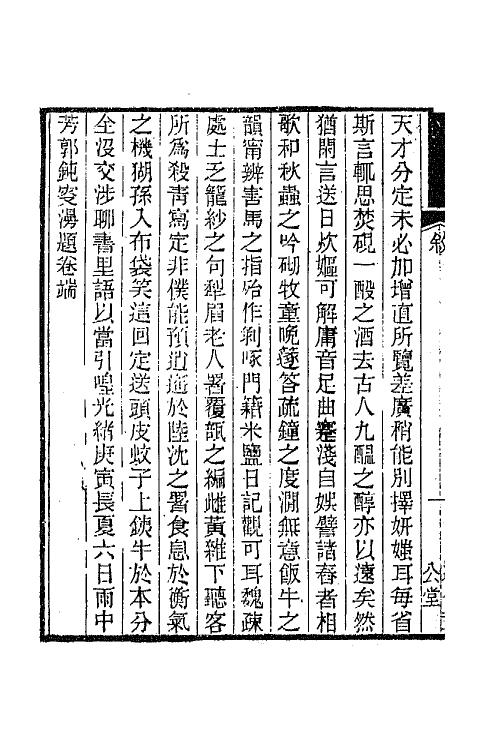 天才分定未必加增直所覽差廣稍能別擇妍媸耳每省
斯言輒思焚硯一酘之酒去古人九醞之醇亦以遠矣然
猶閑言送日炊嫗可解庸音足曲蹇淺自娛譬諸舂者相
歌和秋蟲之吟砌牧童晚篴答疏鐘之度澗無意飯牛之
韻甯辨害馬之指殆作剝啄門籍米鹽日記觀可耳魏疎
處士乏籠紗之句犁眉老人署覆瓿之編雌黃雜下聽客
所爲殺靑寫定非僕能預逍遙於陸沈之署食息於衡氣
之機猢孫入布袋笑這回定送頭皮蚊子上鐵牛於本分
全沒交涉聊書里語以當引喤光緒庚寅長夏六日雨中
芳郭鈍叟漫題卷端
敘
一
公堂